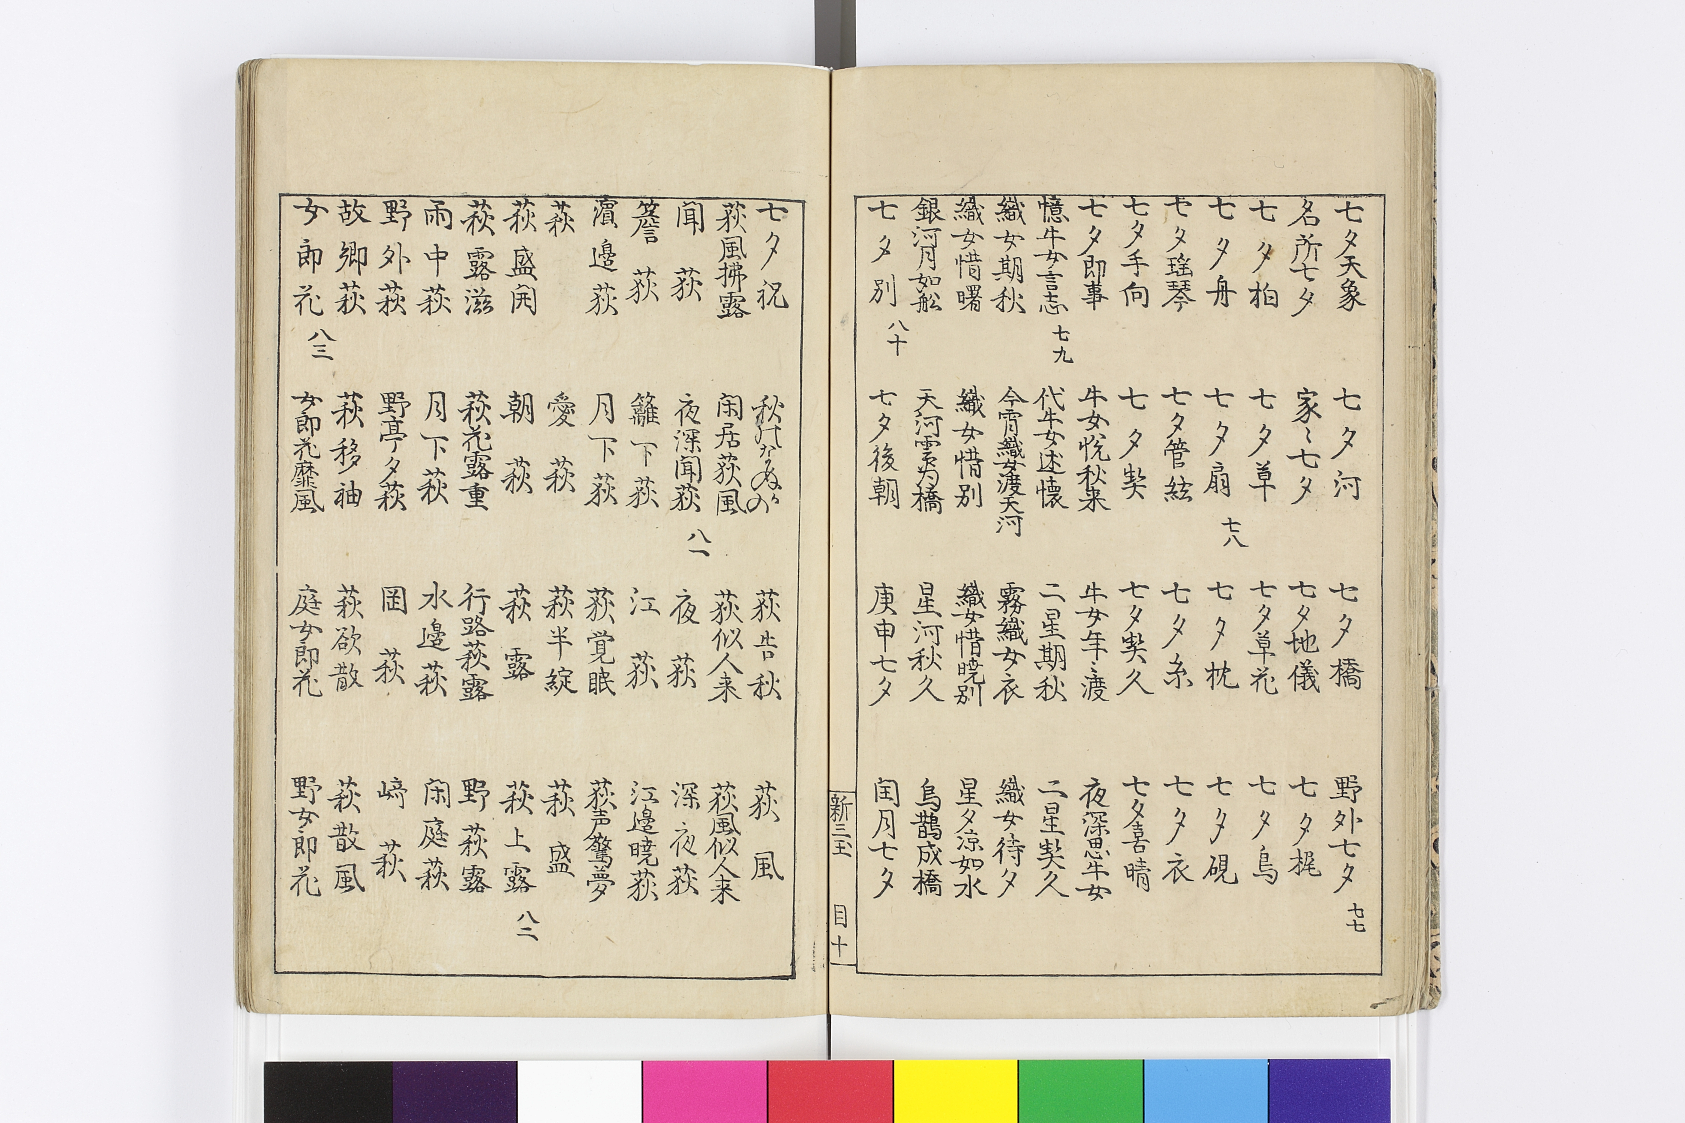 七夕天象 七夕河 七夕橋 野外七夕 七七
名所七夕 家〻七夕 七夕地儀 七夕梶
七夕柏 七夕草 七夕草花 七夕鳥
七夕舟 七夕扇 七八 七夕枕 七夕硯
七夕瑤琴 七夕管絃 七夕糸 七夕衣
七夕手向 七夕契 七夕契久 七夕喜晴
七夕即事 牛女悦秋来 牛女年〻渡 夜深思牛女
憶牛女言志 七九 代牛女述懐 二星期秋 二星契久
織女期秋 今宵織女渡天河 霧織女衣 織女待夕
織女惜曙 織女惜別 織女惜暁別 星夕涼如水
銀河月如舩 天河雲为橋 星河秋久 烏鵲成橋
七夕別 八十 七夕後朝 庚申七夕 閏月七夕
新三玉 目十
七夕祝 荻告秋 荻風
荻風拂露 閑居荻風 荻似人来 荻風似人来
聞荻 夜深聞荻 八一 夜荻 深夜荻
簷荻 籬下荻 江荻 江邊暁荻
濱邊荻 月下荻 荻覚眠 荻声驚夢
萩 愛萩 萩半綻 萩盛
萩盛開 朝萩 萩露 萩上露 八二
萩露滋 萩花露重 行路萩露 野萩露
雨中萩 月下萩 水邊萩 閑庭萩
野外萩 野亭夕萩 岡萩 﨑萩
故郷萩 萩移袖 萩欲散 萩散風
女郎花 八三 女郎花靡風 庭女郎花 野女郎花